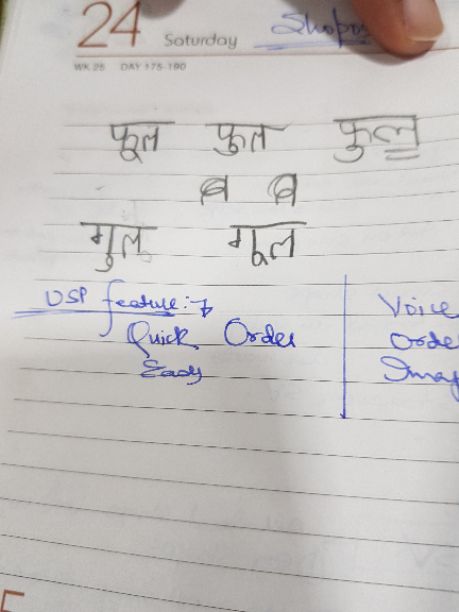 24 Saturday
WK 25 DAY 175-190
फूल फुल फुल
ब ब
गुल गूल
USP feature:→
Quick Order
Easy
Voice
Orde
Imag